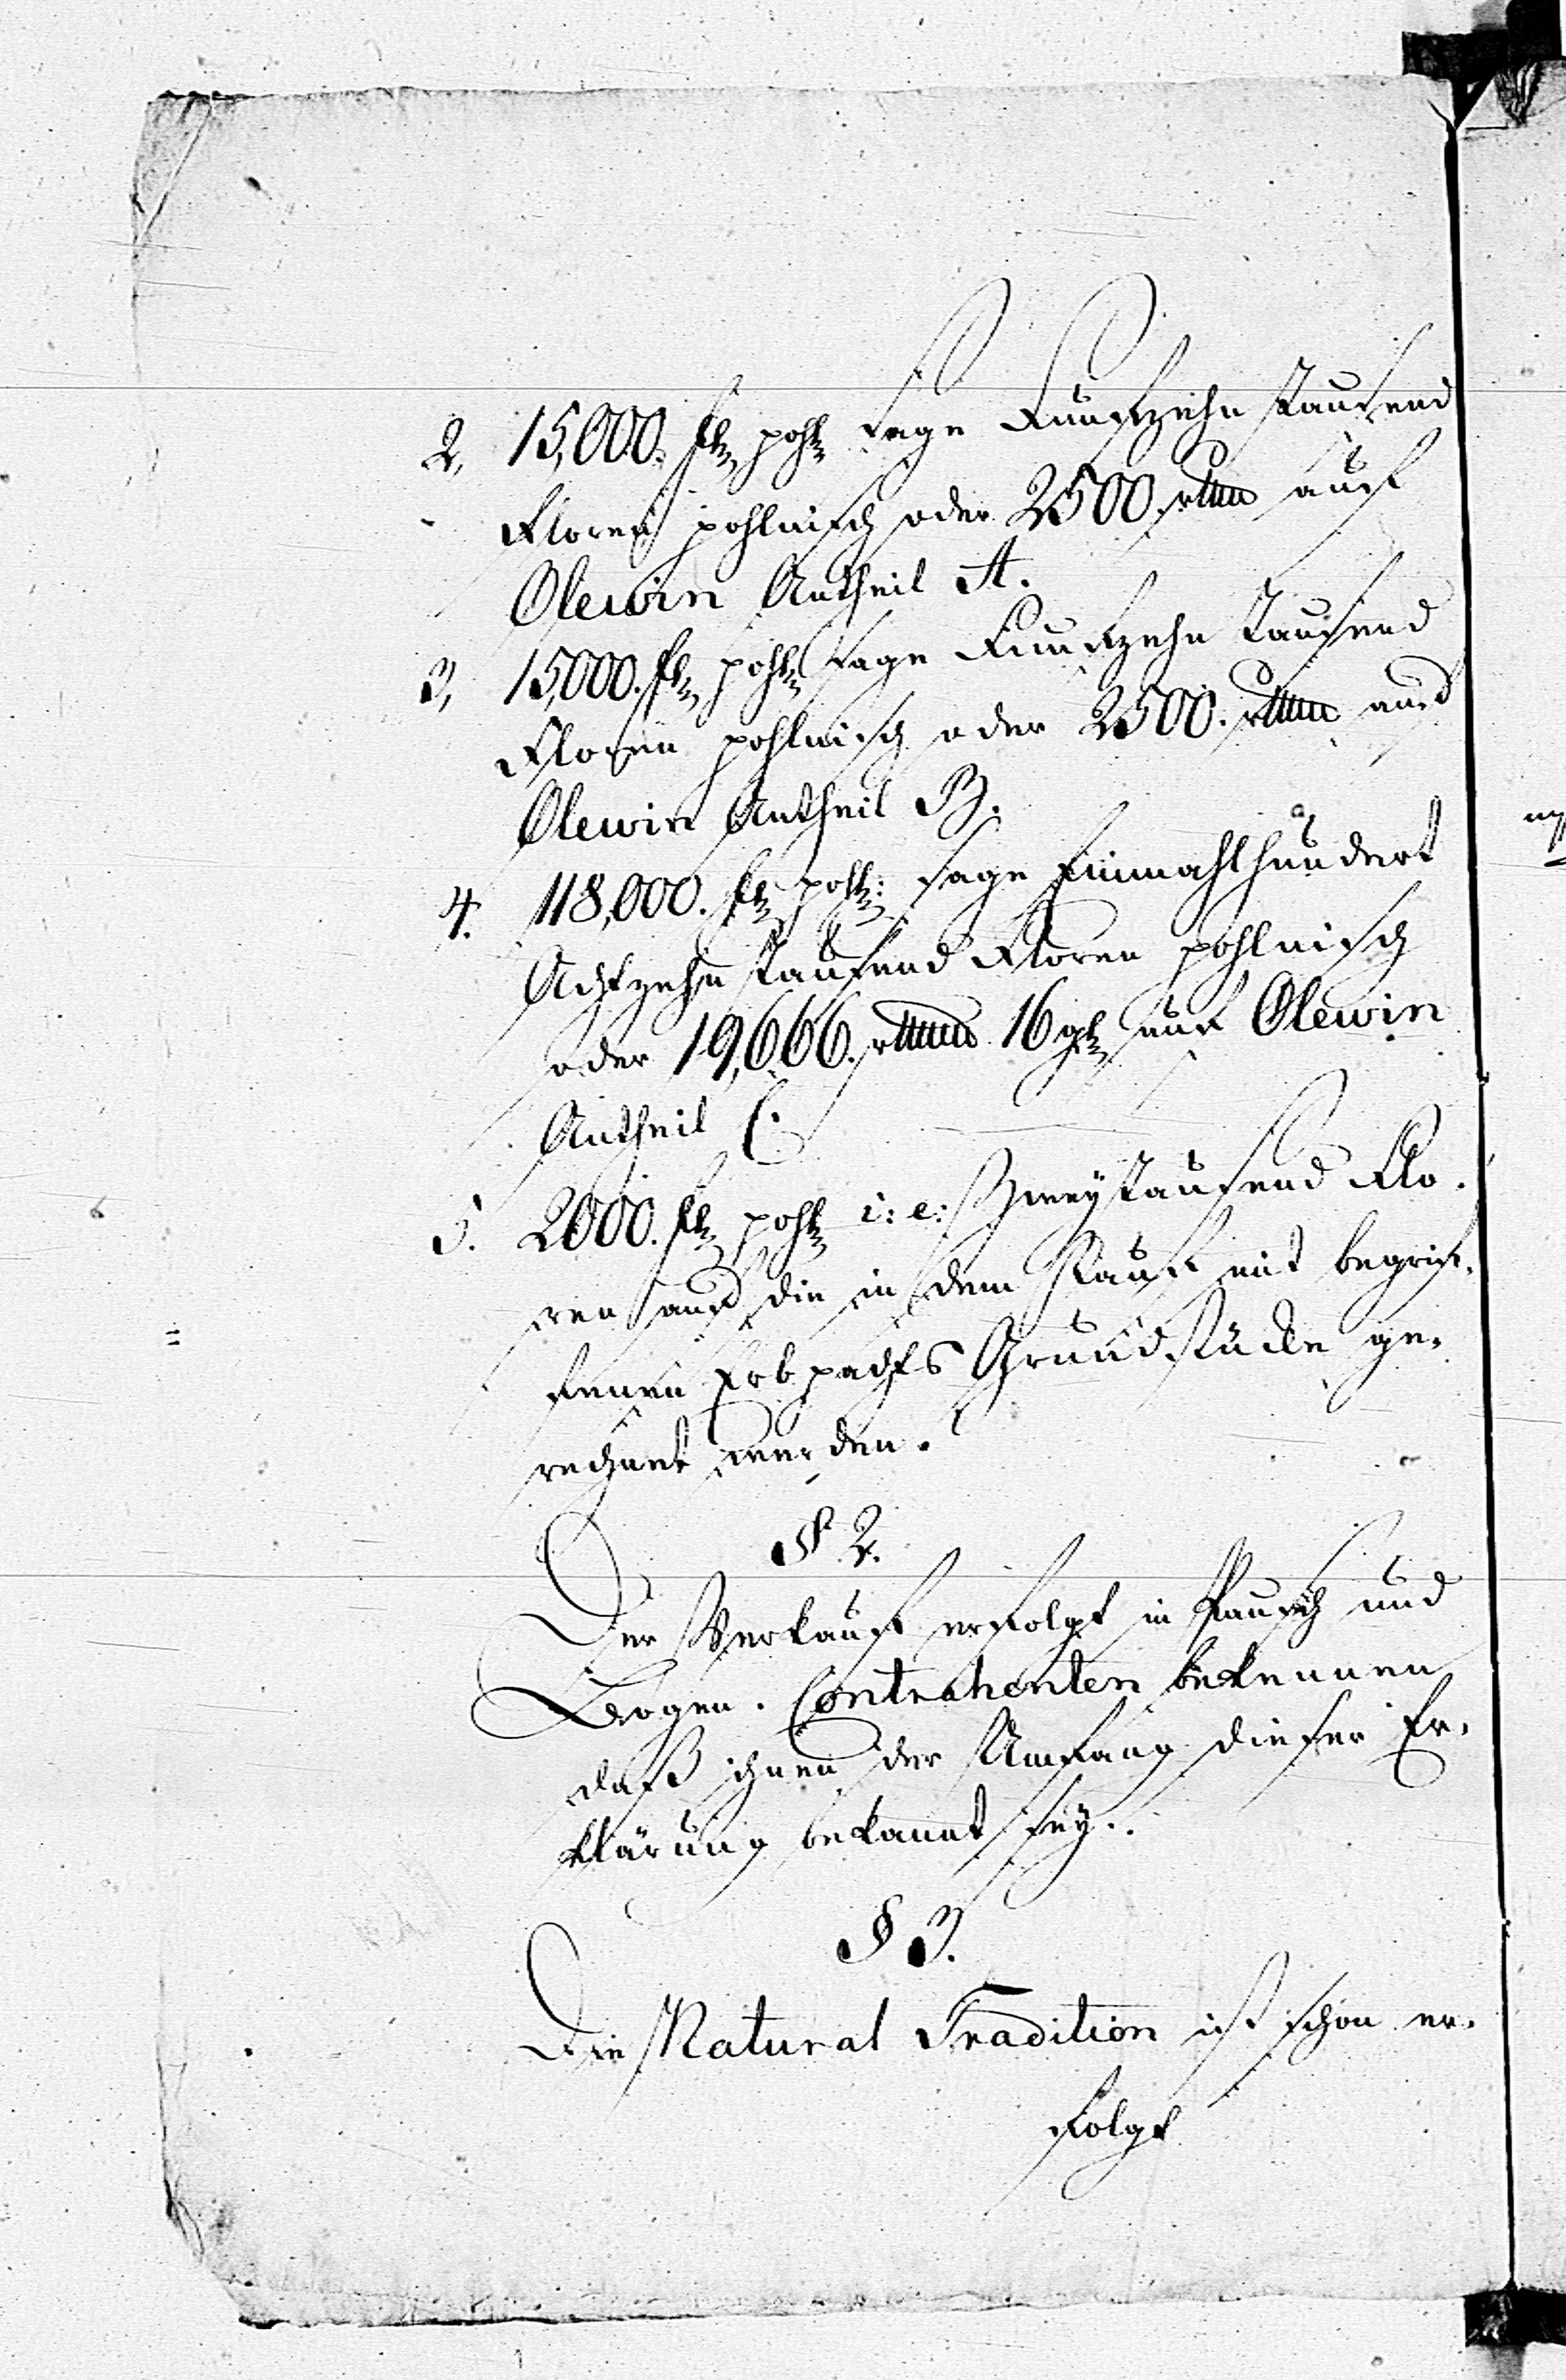 2, 15,000. fl. pohl. sage Funfzehn tausend
Floren pohlnisch oder 2500 rthlr auf
Olewin Antheil A.
3, 15,000. fl. pohl. sage Funfzehn tausend
Floren pohlnisch oder 2500. rthlr auf
Olewin Antheil B.
4. 118,000. fl. pohl: sage Einmahlhundert
Achtzehn tausend Floren pohlnisch
oder 19,666. rthlr 16 gl. auf Olewin
Antheil C.
5. 2000. fl. pohl. i: e: Zweytausend Flo-
ren auf die in dem Kauf mit begrif-
fenen Erbpachts Grundstücke ge-
rechnet werden.
§ 2.
Der Verkauf erfolgt in Pausch und
Bogen. Contrahenten bekennen
daß ihnen der Umfang dieser Er-
klärung bekannt sey.
§ 3.
Die Natural Tradition ist schon er-
folgt